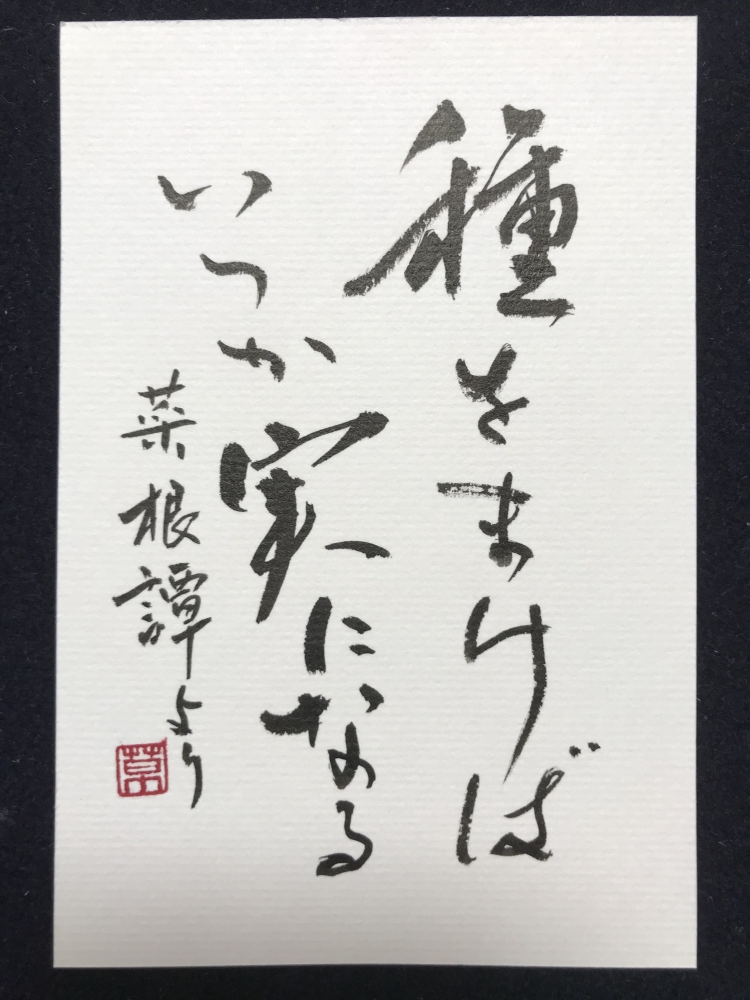 種をまけば
いつか実になる
菜根譚より